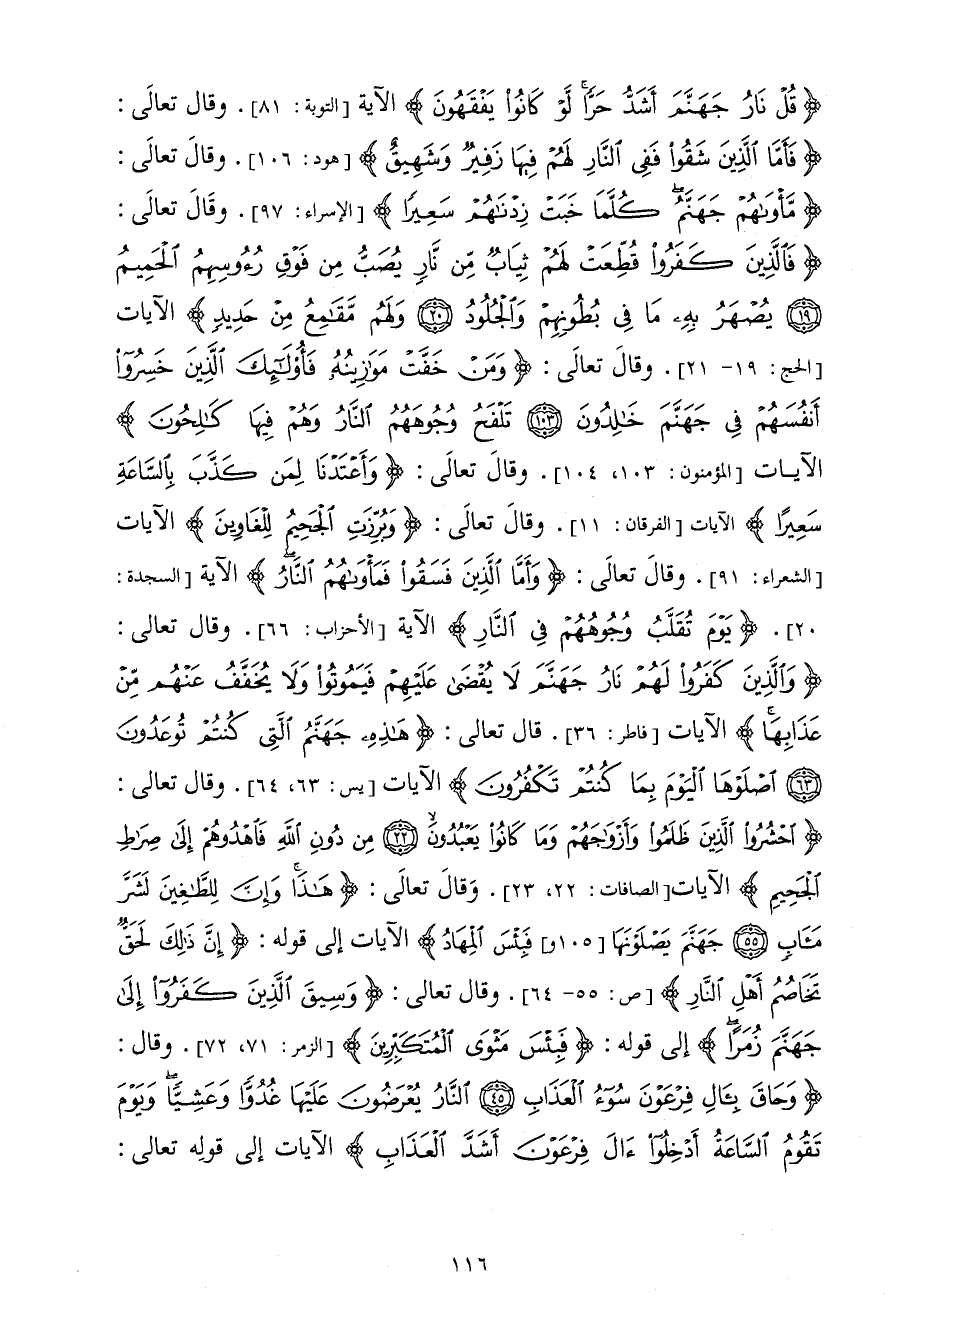 ﴿ قُلْ نَارُ جَهَنَّمَ أَشَدُّ حَرًّا ۚ لَّوْ كَانُوا۟ يَفْقَهُونَ ﴾ الآية [التوبة: ٨١]. وقال تعالَى:
﴿ فَأَمَّا ٱلَّذِينَ شَقُوا۟ فَفِى ٱلنَّارِ لَهُمْ فِيهَا زَفِيرٌ وَشَهِيقٌ ﴾ [هود: ١٠٦]. وقالَ تعالَى:
﴿ مَّأْوَىٰهُمْ جَهَنَّمُ ۖ كُلَّمَا خَبَتْ زِدْنَـٰهُمْ سَعِيرًا ﴾ [الإسراء: ٩٧]. وقَالَ تعالَى:
﴿ فَٱلَّذِينَ كَفَرُوا۟ قُطِّعَتْ لَهُمْ ثِيَابٌ مِّن نَّارٍ يُصَبُّ مِن فَوْقِ رُءُوسِهِمُ ٱلْحَمِيمُ
﴿١٩﴾ يُصْهَرُ بِهِۦ مَا فِى بُطُونِهِمْ وَٱلْجُلُودُ ﴿٢٠﴾ وَلَهُم مَّقَـٰمِعُ مِنْ حَدِيدٍ ﴾ الآيات
[الحج: ١٩- ٢١]. وقالَ تعالَى: ﴿ وَمَنْ خَفَّتْ مَوَٰزِينُهُۥ فَأُو۟لَـٰٓئِكَ ٱلَّذِينَ خَسِرُوٓا۟
أَنفُسَهُمْ فِى جَهَنَّمَ خَـٰلِدُونَ ﴿١٠٣﴾ تَلْفَحُ وُجُوهَهُمُ ٱلنَّارُ وَهُمْ فِيهَا كَـٰلِحُونَ ﴾
الآيـات [المؤمنون: ١٠٣، ١٠٤]. وقالَ تعالَى: ﴿ وَأَعْتَدْنَا لِمَن كَذَّبَ بِٱلسَّاعَةِ
سَعِيرًا ﴾ الآيات [الفرقان: ١١]. وقالَ تعالَى: ﴿ وَبُرِّزَتِ ٱلْجَحِيمُ لِلْغَاوِينَ ﴾ الآيات
[الشعراء: ٩١]. وقالَ تعالَى: ﴿ وَأَمَّا ٱلَّذِينَ فَسَقُوا۟ فَمَأْوَىٰهُمُ ٱلنَّارُ ۖ ﴾ الآية [السجدة:
٢٠]. ﴿ يَوْمَ تُقَلَّبُ وُجُوهُهُمْ فِى ٱلنَّارِ ﴾ الآية [الأحزاب: ٦٦]. وقال تعالى:
﴿ وَٱلَّذِينَ كَفَرُوا۟ لَهُمْ نَارُ جَهَنَّمَ لَا يُقْضَىٰ عَلَيْهِمْ فَيَمُوتُوا۟ وَلَا يُخَفَّفُ عَنْهُم مِّنْ
عَذَابِهَا ۚ ﴾ الآيات [فاطر: ٣٦]. قال تعالى: ﴿ هَـٰذِهِۦ جَهَنَّمُ ٱلَّتِى كُنتُمْ تُوعَدُونَ
﴿٦٣﴾ ٱصْلَوْهَا ٱلْيَوْمَ بِمَا كُنتُمْ تَكْفُرُونَ ﴾ الآيات [يس: ٦٣، ٦٤]. وقال تعالى:
﴿ ٱحْشُرُوا۟ ٱلَّذِينَ ظَلَمُوا۟ وَأَزْوَٰجَهُمْ وَمَا كَانُوا۟ يَعْبُدُونَ ۙ ﴿٢٢﴾ مِن دُونِ ٱللَّهِ فَٱهْدُوهُمْ إِلَىٰ صِرَٰطِ
ٱلْجَحِيمِ ﴾ الآيات[الصافات: ٢٢، ٢٣]. وَقالَ تعالَى: ﴿ هَـٰذَا ۚ وَإِنَّ لِلطَّـٰغِينَ لَشَرَّ
مَـَٔابٍ ﴿٥٥﴾ جَهَنَّمَ يَصْلَوْنَهَا [١٠٥و] فَبِئْسَ ٱلْمِهَادُ ﴾ الآيات إلى قوله: ﴿ إِنَّ ذَٰلِكَ لَحَقٌّ
تَخَاصُمُ أَهْلِ ٱلنَّارِ ﴾ [ص: ٥٥- ٦٤]. وقال تعالى: ﴿ وَسِيقَ ٱلَّذِينَ كَفَرُوٓا۟ إِلَىٰ
جَهَنَّمَ زُمَرًا ۖ ﴾ إلى قوله: ﴿ فَبِئْسَ مَثْوَى ٱلْمُتَكَبِّرِينَ ﴾ [الزمر: ٧١، ٧٢]. وقال:
﴿ وَحَاقَ بِـَٔالِ فِرْعَوْنَ سُوٓءُ ٱلْعَذَابِ ﴿٤٥﴾ ٱلنَّارُ يُعْرَضُونَ عَلَيْهَا غُدُوًّا وَعَشِيًّا ۖ وَيَوْمَ
تَقُومُ ٱلسَّاعَةُ أَدْخِلُوٓا۟ ءَالَ فِرْعَوْنَ أَشَدَّ ٱلْعَذَابِ ﴾ الآيات إلى قولِه تعالى:
١١٦